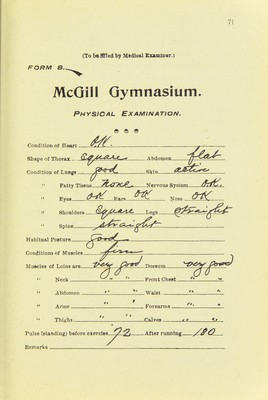 71
(To be filled by Medical Examiner.)
FORM B.
McGill Gymnasium.
PHYSICAL EXAMINATION.
Condition of Heart O.K.
Shape of Thorax Square Abdomen flat
Condition of Lungs good Skin active
" Fatty Tissue None Nervous System O.K.
" Eyes OK Ears OK Nose OK
" Shoulders Square Legs straight
" Spine straight
Habitual Posture good
Conditions of Muscles firm
Muscles of Loins are very good Dorsum very good
" Neck " " Front Chest " "
" Abdomen " " Waist " "
" Arms " " Forearms " "
" Thighs " " Calves " "
Pulse (standing) before exercise 72 After running 180
Remarks